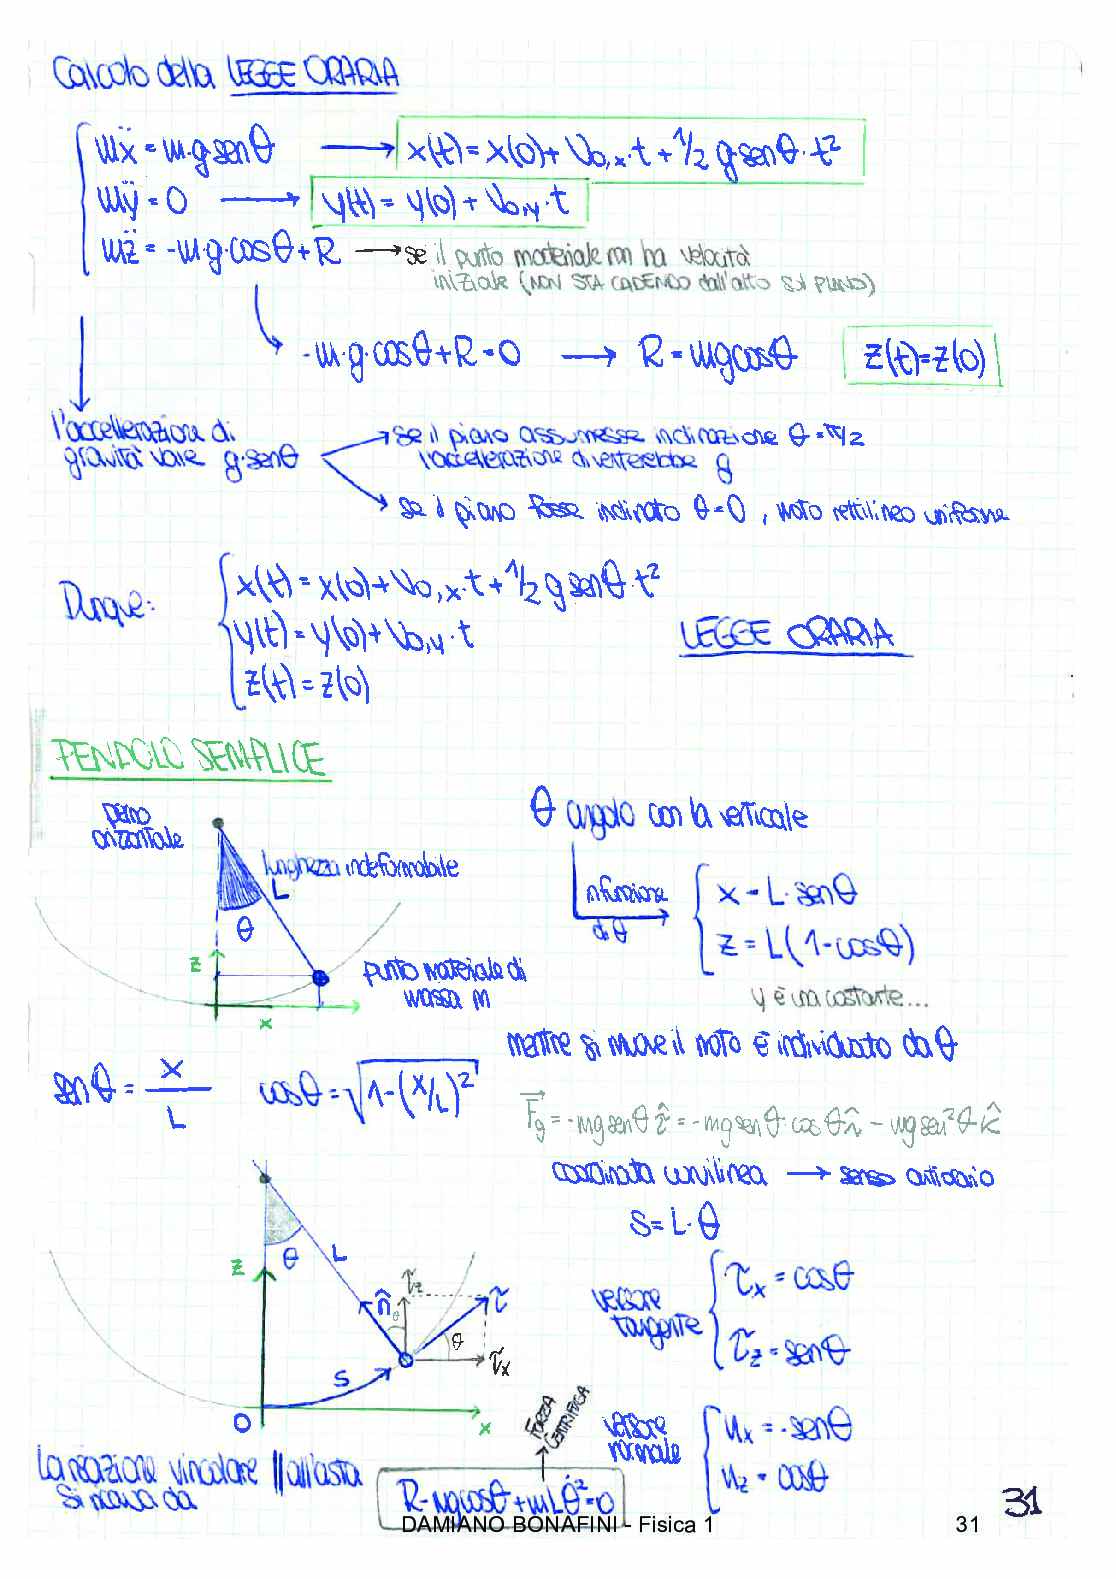 Calcolo della LEGGE ORARIA
mẍ = m·g·senθ → x(t) = x(0) + V₀,ₓ·t + 1/2 g·senθ·t²
mÿ = 0 → y(t) = y(0) + V₀,y·t
mz̈ = -m·g·cosθ + R → se il punto materiale non ha velocità
iniziale (NON STA CADENDO dall'alto sul PIANO)
-m·g·cosθ + R = 0 → R = mgcosθ z(t) = z(0)
l'accellerazione di
gravità vale g·senθ
se il piano assumesse inclinazione θ = π/2
l'accellerazione diventerebbe g
se il piano fosse inclinato θ = 0, moto rettilineo uniforme
Dunque:
x(t) = x(0) + V₀,ₓ·t + 1/2 g senθ·t²
y(t) = y(0) + V₀,y·t
z(t) = z(0)
LEGGE ORARIA
PENDOLO SEMPLICE
perno
orizzontale
lunghezza indeformabile
L
θ
z
x
punto materiale di
massa m
θ angolo con la verticale
in funzione
di θ
x = L·senθ
z = L(1-cosθ)
y è una costante...
mentre si muove il moto è individuato da θ
senθ = x/L cosθ = √1-(x/L)²
F⃗g = -mg senθ τ̂ = -mg senθ·cosθ î - mg sen²θ k̂
coordinata curvilinea → senso antiorario
S = L·θ
versore
tangente
τₓ = cosθ
τz = senθ
versore
normale
uₓ = -senθ
uz = cosθ
z
θ
L
n̂
θ
τz
τ
θ
τₓ
S
O
x
FORZA
CENTRIFUGA
La reazione vincolare // all'asta
si ricava da
R - mgcosθ + mLθ̇² = 0
31
DAMIANO BONAFINI - Fisica 1
31